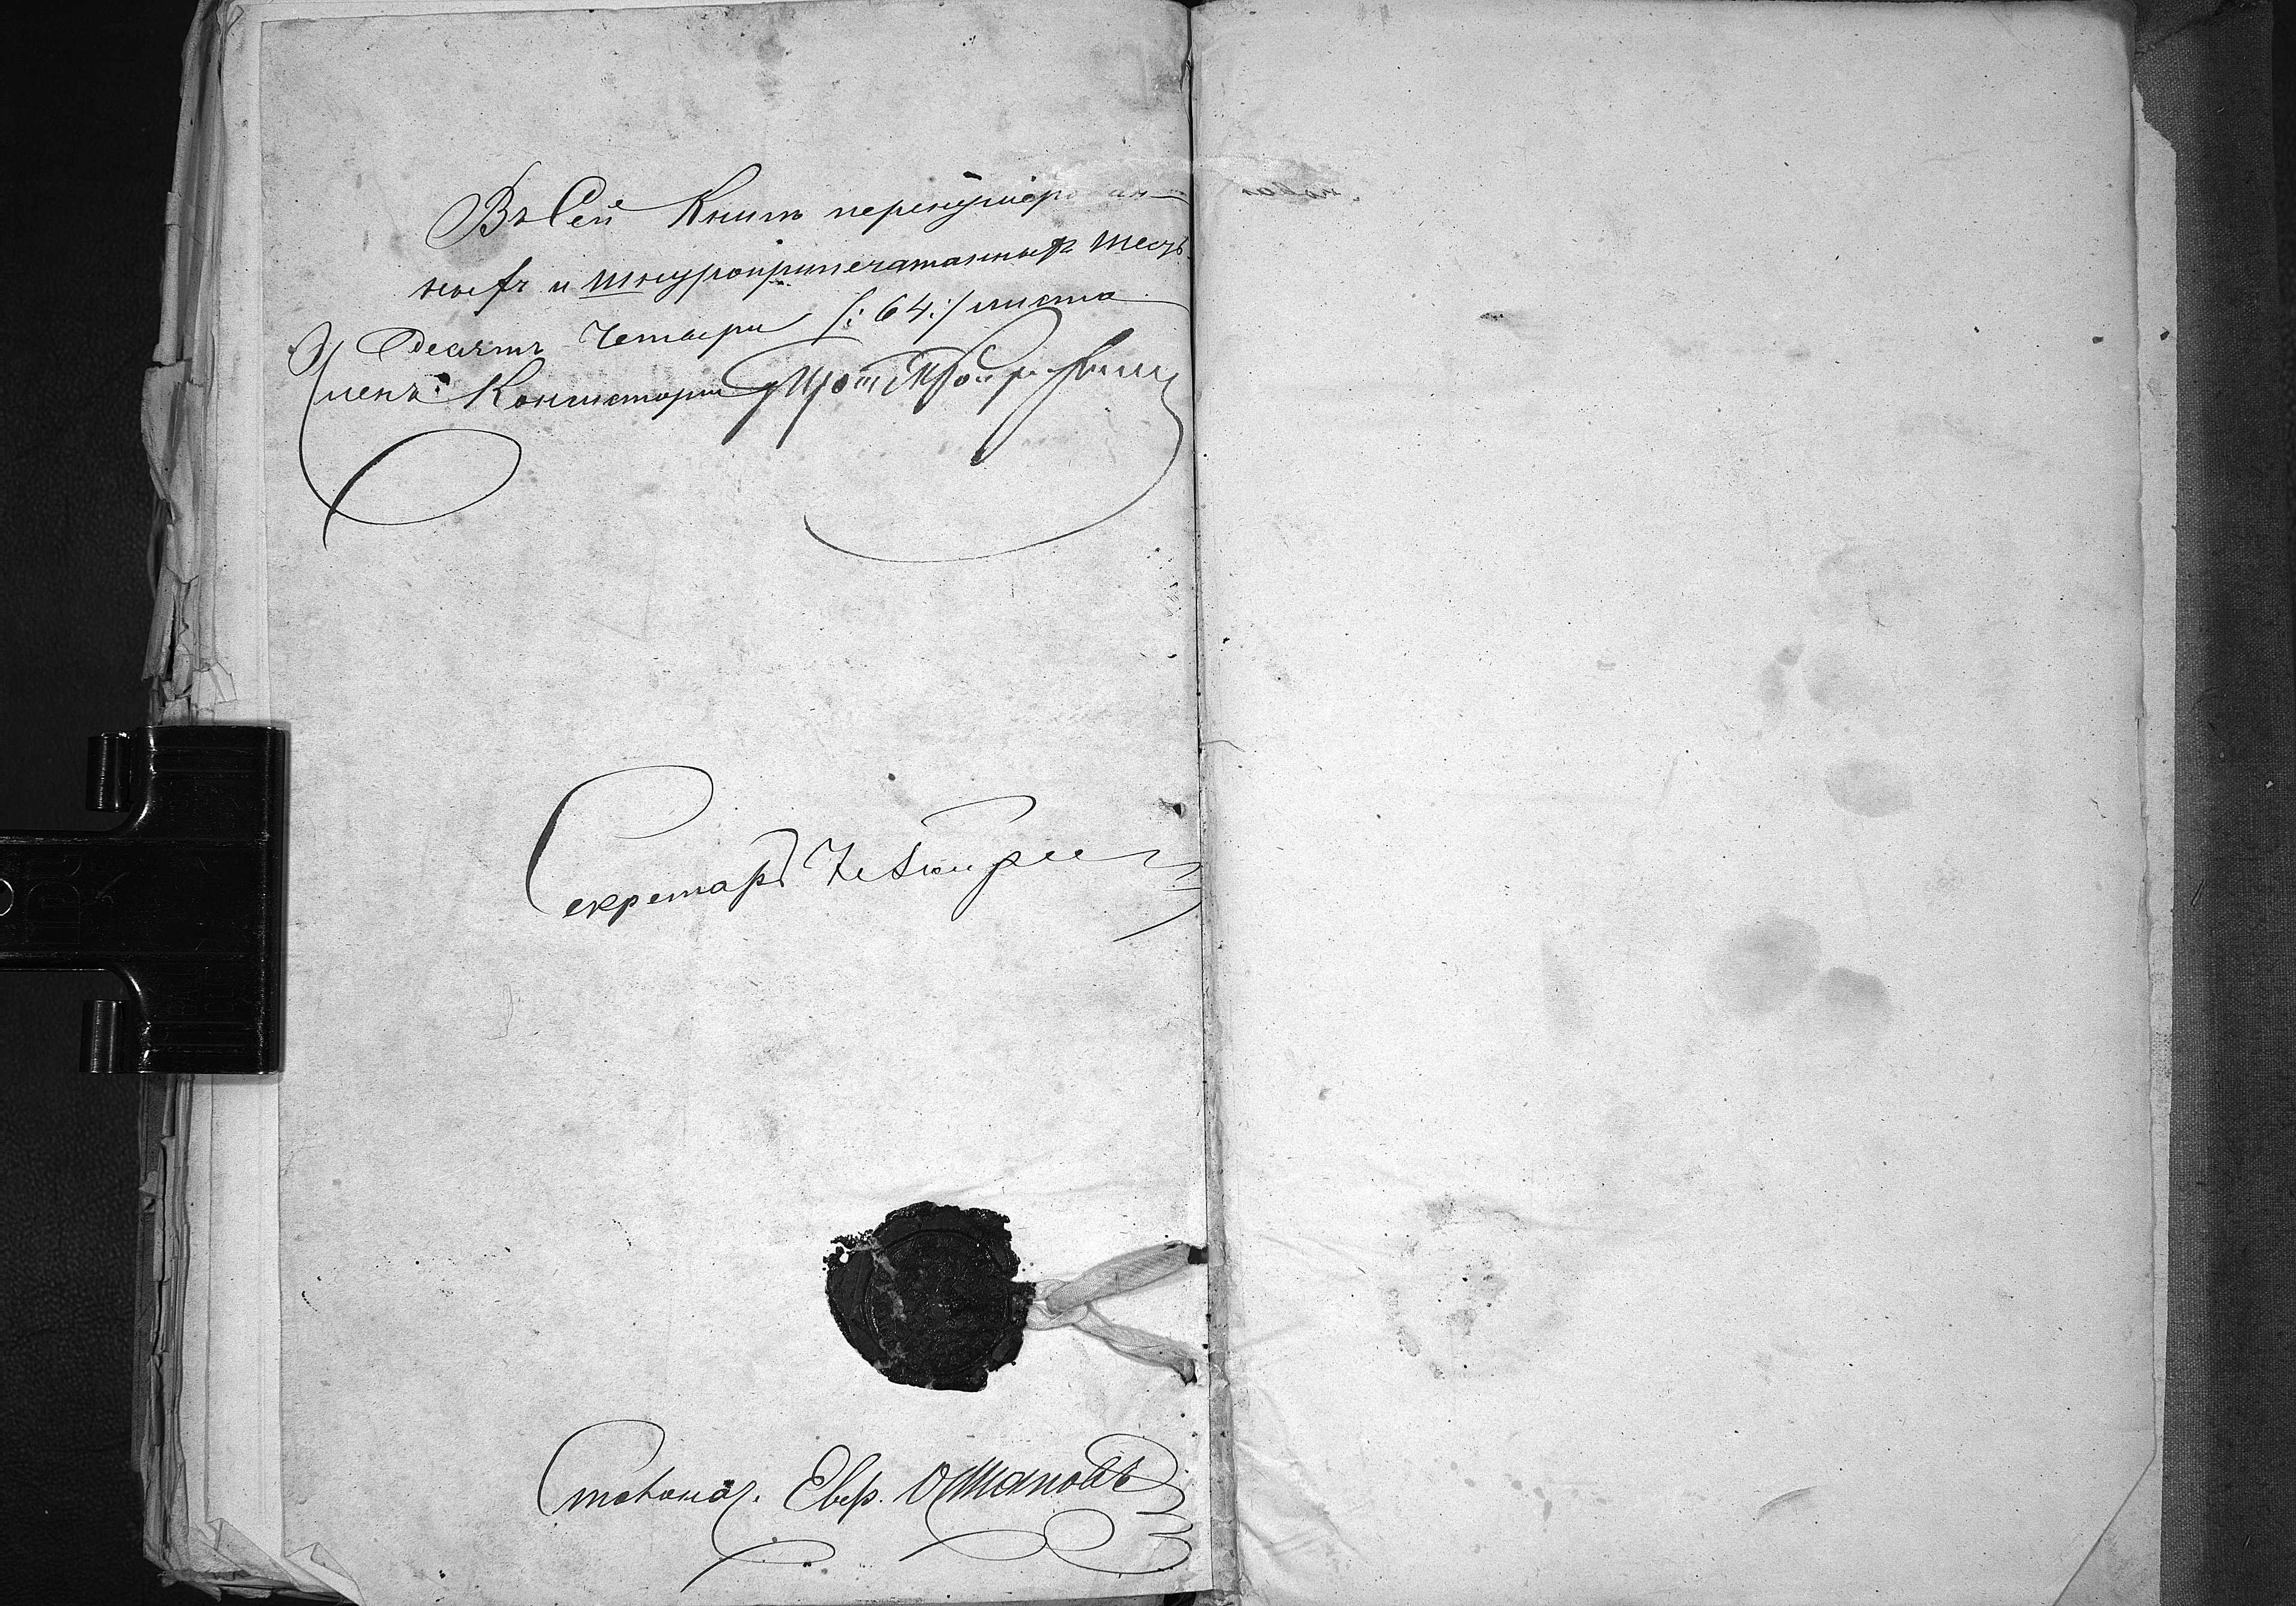 Въ Сей Книгѣ перенумерован-
ныхъ и шнуроприпечатанныхъ шесть
Десятъ Четыри /: 64 :/ листа
Членъ Консисторіи Прот.
Секретарь
Столонач.